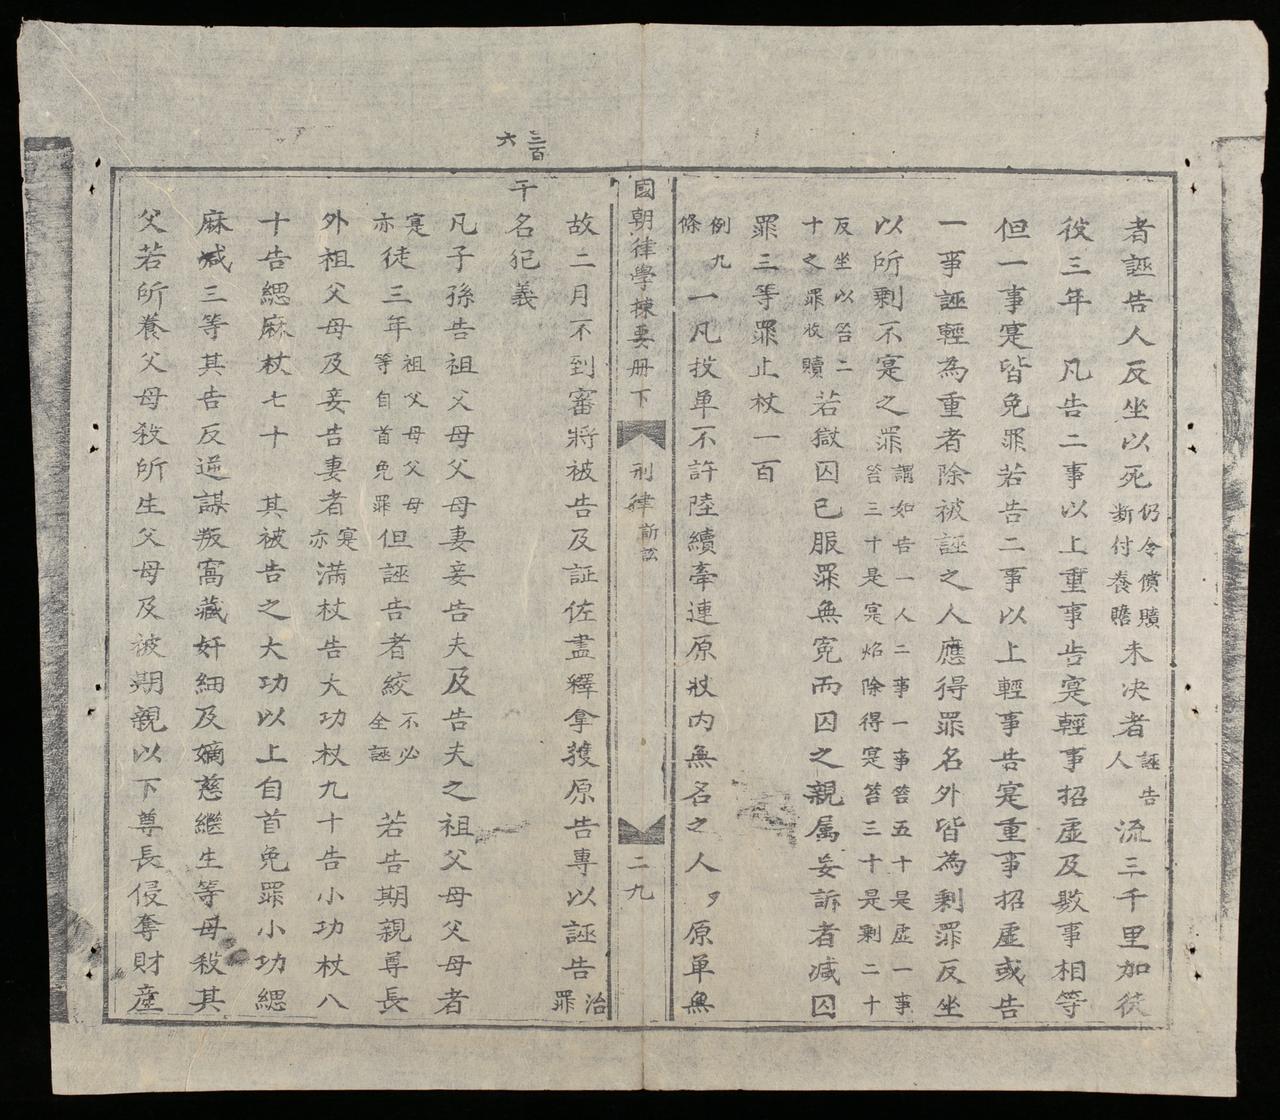 者誣告人反坐以死仍令償贖断付養贍未決者誣告人流三千里加徒
役三年　凡告二事以上重事告寔輕事招虛及数事相等
但一事寔皆免罪若告二事以上輕事告寔重事招虛或告
一事誣輕為重者除被誣之人應得罪名外皆為剩罪反坐
以所剩不寔之罪謂如告一人二事一事笞五十是虛一事笞三十是寔焰除得寔笞三十是剩二十
反坐以笞二十之罪收贖若獄囚已服罪無冤而囚之親属妄訴者減囚
罪三等罪止杖一百
例九條　一凡投单不許陸續牽連原狀内無名之人ヌ原单無
國朝律學揀要册下　刑律訴訟　二九
故二月不到審將被告及証佐盡釋拿獲原告專以誣告治罪
三百六
干名犯義
凡子孫告祖父母父母妻妾告夫及告夫之祖父母父母者
寔亦徒三年祖父母父母等自首免罪但誣告者絞不必全誣　若告期親尊長
外祖父母及妾告妻者寔亦滿杖告大功杖九十告小功杖八
十告緦麻杖七十　其被告之大功以上自首免罪小功緦
麻減三等其告反逆謀叛窩藏奸細及嫡慈繼生等母殺其
父若所養父母殺所生父母及被期親以下尊長侵奪財産